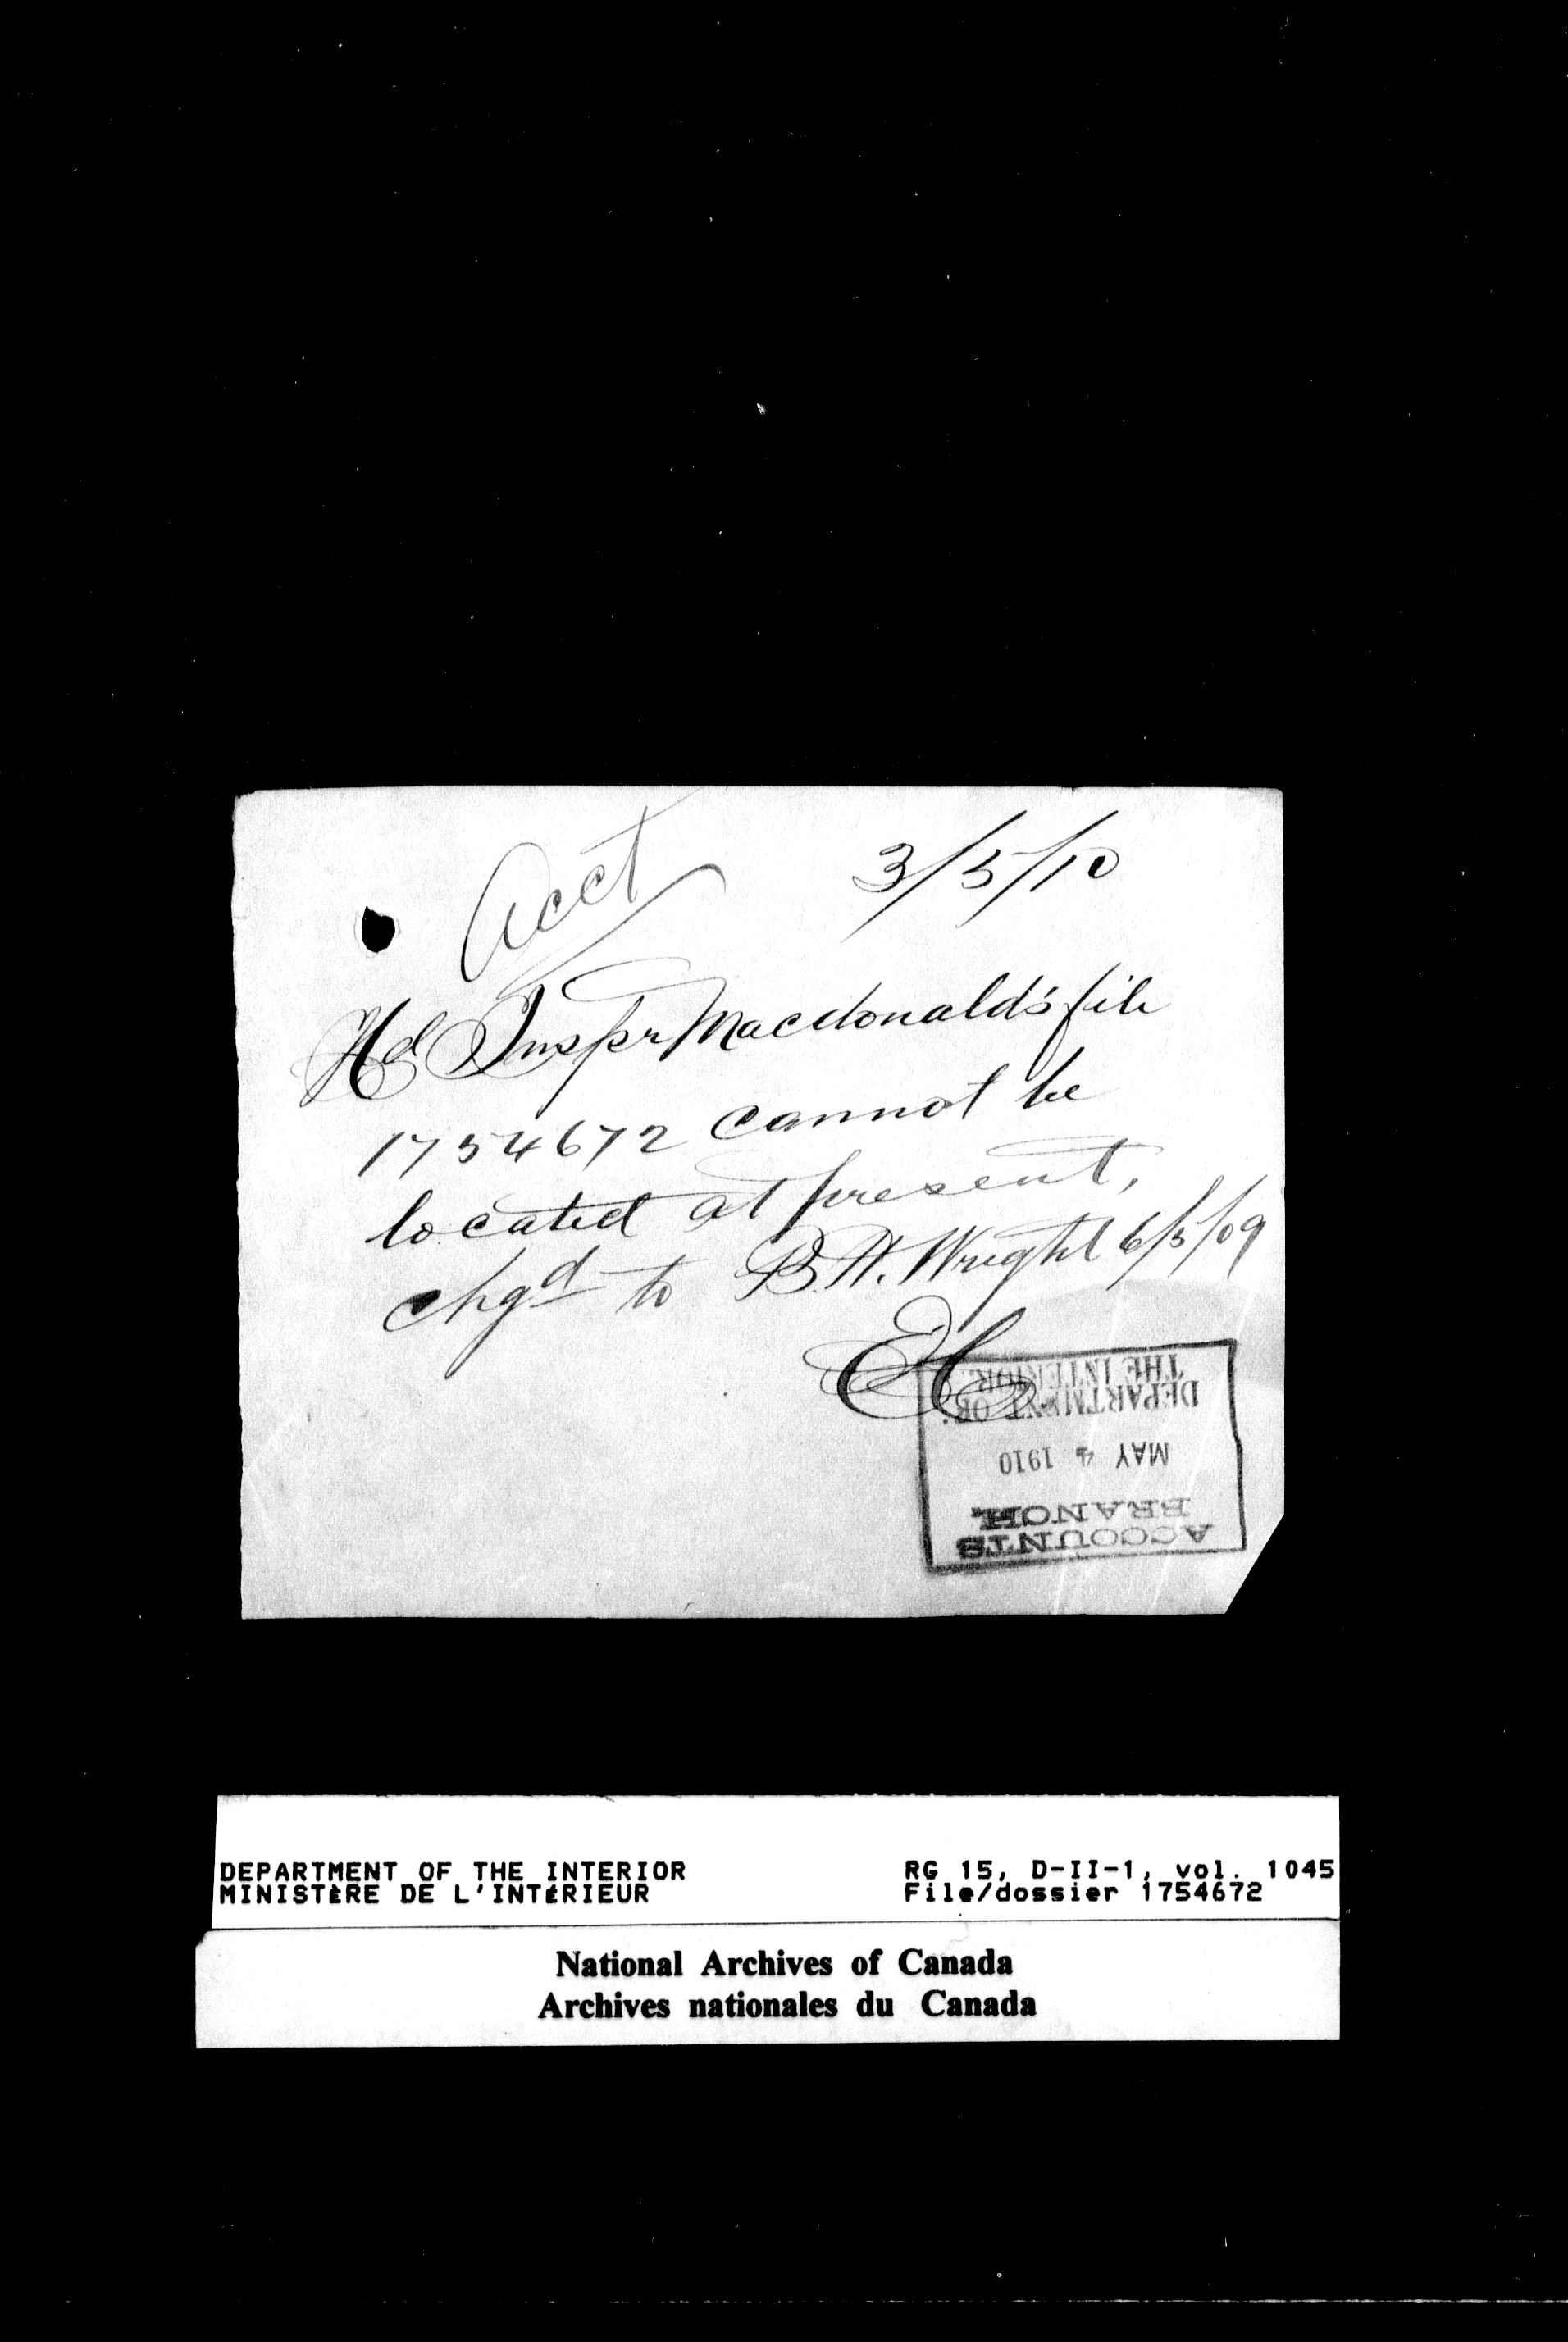 Acct
3/5/10
Hd Inspr Macdonald's file
1754672 cannot be
located at present,
chgd to B.H. Wright 6/5/09
EH
ACCOUNTS
BRANCH,
MAY 4 1910
DEPARTMENT OF
THE INTERIOR.
DEPARTMENT OF THE INTERIOR
MINISTÈRE DE L'INTÉRIEUR
RG 15, D-II-1, vol. 1045
File/dossier 1754672
National Archives of Canada
Archives nationales du Canada